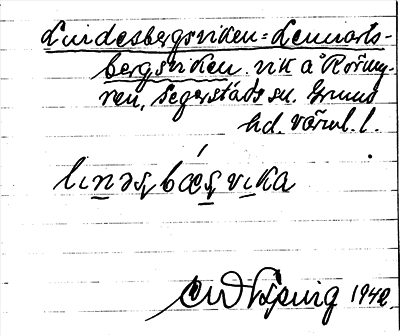 Lindesbergsviken = Lennarts-
bergsviken. vik å Rörmy-
ren, Segerstads sn. Grums
hd. Värml. l.
lınəʂbæʂvıka
1942.